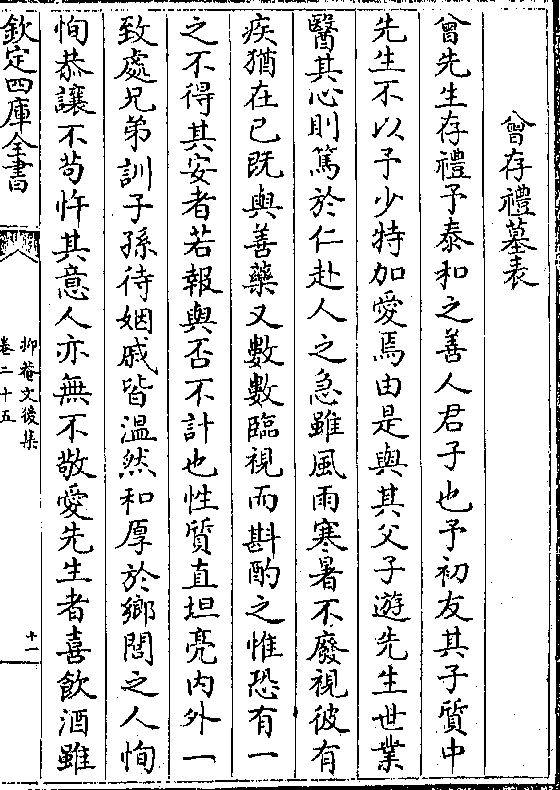 曾存禮墓表
曾先生存禮予泰和之善人君子也予初友其子質中
先生不以予少特加愛焉由是與其父子遊先生世業
醫其心則篤於仁赴人之急雖風雨寒暑不廢視彼有
疾猶在己既與善藥又數數臨視而斟酌之惟恐有一
之不得其安者若報與否不計也性質直坦亮内外一
致處兄弟訓子孫待姻戚皆溫然和厚於鄉閭之人恂
恂恭讓不苟忤其意人亦無不敬愛先生者喜飲酒雖
欽定四庫全書
抑菴文後集
卷二十五
十一